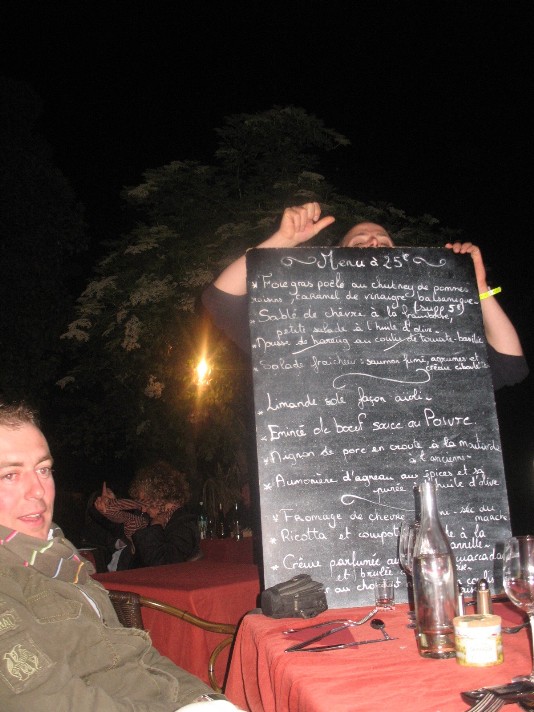 Menu à 25€
* Foie gras poêlé au chutney de pommes
raisins, caramel de vinaigre balsamique
* Sablé de chèvre à la framboise, (supp 5€)
petite salade à l'huile d'olive.
* Mousse de hareng au coulis de tomate-basilic
Salade fraicheur: saumon fumé, agrumes et
crème ciboulette
* Limande sole façon aïoli.
* Emincé de boeuf sauce au Poivre.
* Mignon de porc en croute à la moutarde
à l'ancienne.
* Aumonière d'agneau aux épices et sa
purée à l'huile d'olive
* Fromage de chèvre du
marché
* Ricotta et compot à la
nnelle
* Crème parfumée au
et brûlée
au choco